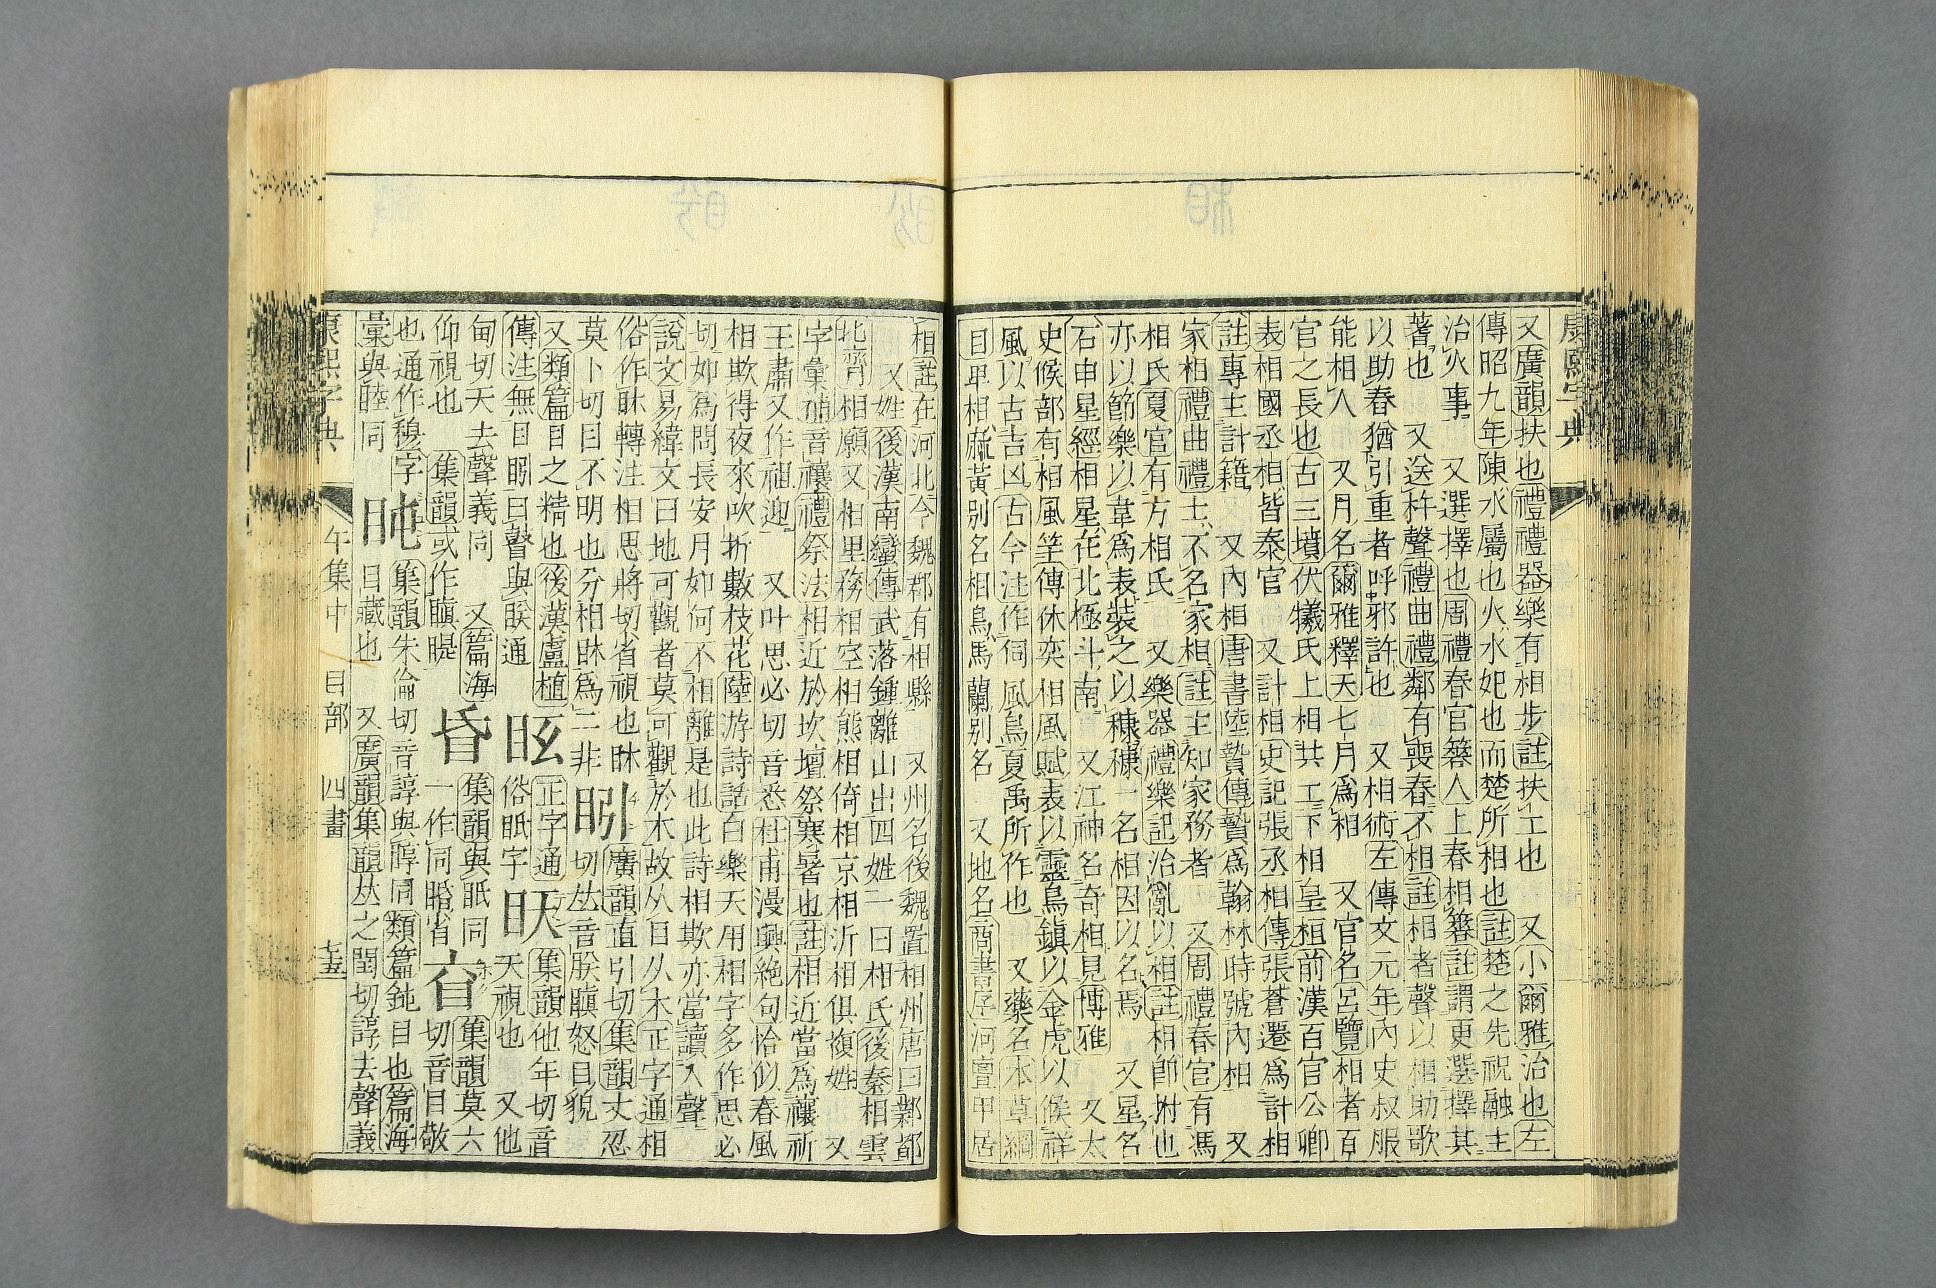 康熙字典
又廣韻扶也禮禮器樂有相步註扶工也 又小爾雅治也左
傳昭九年陳水屬也火水妃也而楚所相也註楚之先祝融主
治火事 又選擇也周禮春官簭人上春相簭註謂更選擇其
蓍也 又送杵聲禮曲禮鄰有喪舂不相註相者聲以相助歌
以助舂猶引重者呼邪許也 又相術左傳文元年內史叔服
能相人 又月名爾雅釋天七月爲相 又官名呂覽相者百
官之長也古三墳伏犧氏上相共工下相皇桓前漢百官公卿
表相國丞相皆秦官 又計相史記張丞相傳張蒼遷爲計相
註專主計籍 又內相唐書陸贄傳贄爲翰林時號內相 又
家相禮曲禮士不名家相註主知家務者 又周禮春官有馮
相氏夏官有方相氏 又樂器禮樂記治亂以相註相卽拊也
亦以節樂以韋爲表裝之以穅穅一名相因以名焉 又星名
石申星經相星在北極斗南 又江神名奇相見博雅 又太
史候部有相風竿傳休奕相風賦表以靈烏鎮以金虎以候祥
風以古吉凶古今注作伺風烏夏禹所作也 又藥名本草綱
目卑相麻黃別名相烏馬蘭別名 又地名商書序河亶甲居
相註在河北今魏郡有相縣 又州名後魏置相州唐曰鄴郡
又姓後漢南蠻傳武落鍾離山出四姓一曰相氏後秦相雲
北齊相願又相里務相空相熊相倚相京相沂相俱複姓 又
字彙補音禳禮祭法相近於坎壇祭寒暑也註相近當爲禳祈
王肅又作祖迎 又叶思必切音悉杜甫漫興絶句恰似春風
相欺得夜來吹折數枝花陸游詩話白樂天用相字多作思必
切如爲問長安月如何不相離是也此詩相欺亦當讀入聲
說文易緯文曰地可觀者莫可觀於木故从目从木正字通相
俗作眿轉注相思將切省視也眿
莫卜切目不明也分相眿爲二非 眀 廣韻直引切集韻丈忍
又類篇目之精也後漢盧植
切𠀤音朕瞋怒目貌
傳注無目眀曰瞽與朕通 眩 正字通
俗眂字 昗 集韻他年切音
天視也 又他
甸切天去聲義同 又篇海
仰視也 集韻或作瞋睼 眘 集韻與眂同
一作同暋省 㝐 集韻莫六
切音目敬
也通作穆字 集韻朱倫切音諄與䐏同類篇鈍目也篇海
彙與睦同 盹 目藏也 又廣韻集韻𠀤之閏切諄去聲義
康熙字典 午集中 目部 四畫 七五